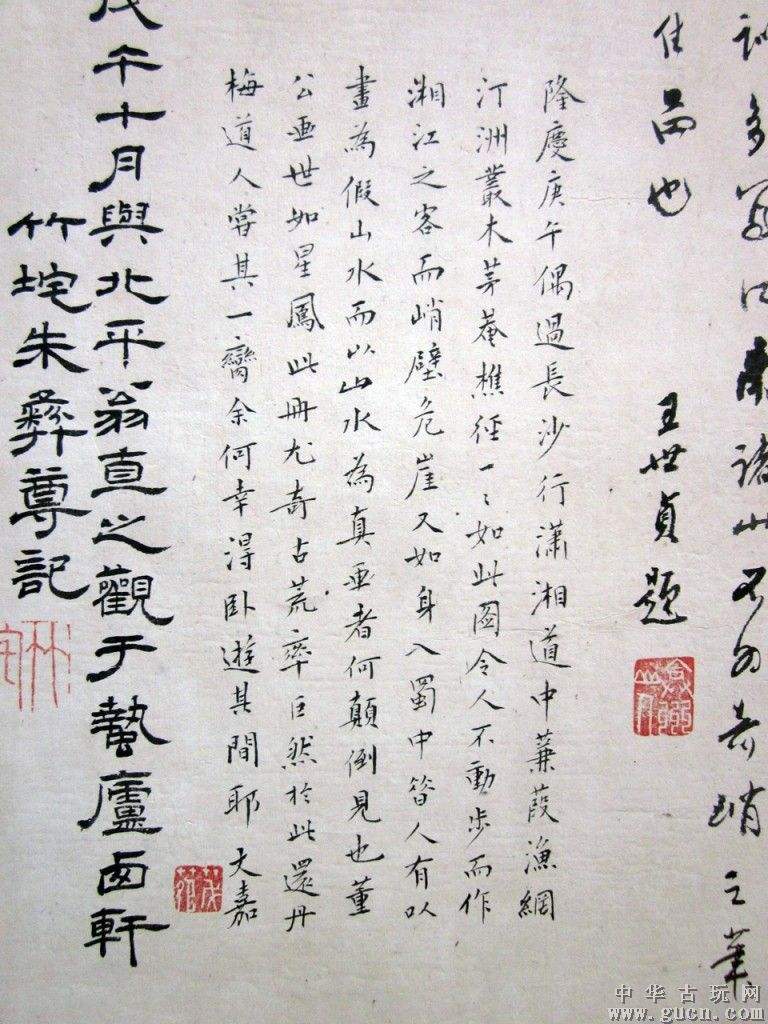 訓多寫江南諸山不為奇峭之筆
佳品也
王世貞題
隆慶庚午偶過長沙行瀟湘道中蒹葭漁網
汀洲叢木茅菴樵徑一一如此圖令人不動步而作
湘江之客而峭壁危崖又如身入蜀中昔人有以
畫為假山水而以山水為真画者何顛倒見也董
公画世如星鳳此冊尤奇古荒率巨然於此還丹
梅道人嘗其一臠余何幸得臥遊其間耶文嘉
戊午十月與北平翁直之觀于蟄廬西軒
竹垞朱彝尊記
中华古玩网
www.gucn.com